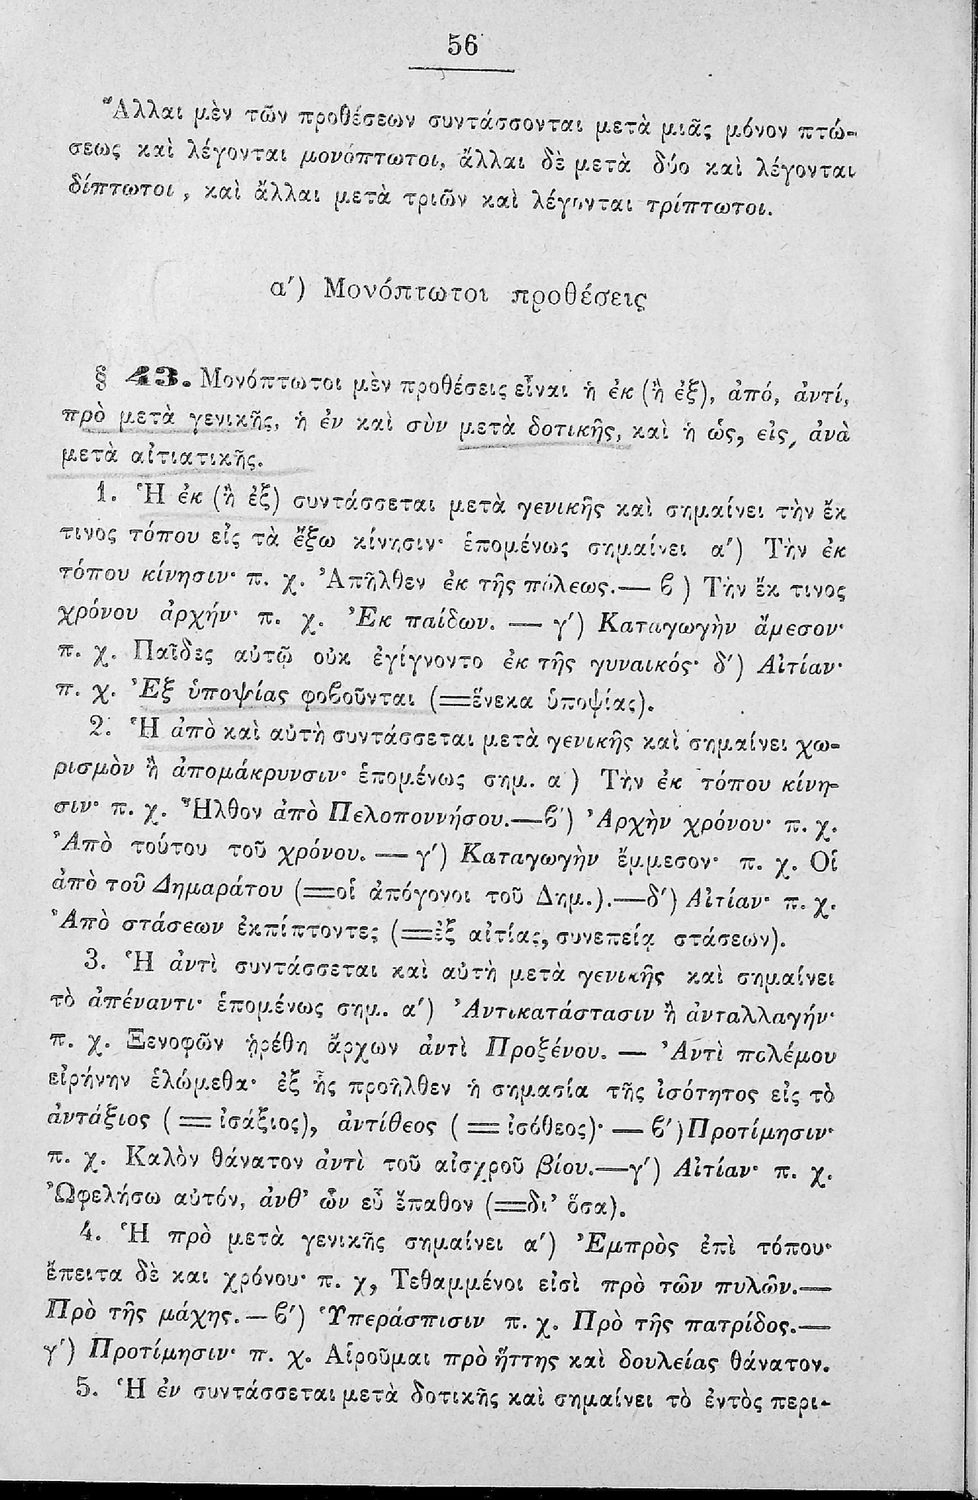 56
Ἄλλαι μὲν τῶν προθέσεων συντάσσονται μετὰ μιᾶς μόνον πτώ-
σεως καὶ λέγονται μονόπτωτοι, ἄλλαι δὲ μετὰ δύο καὶ λέγονται
δίπτωτοι, καὶ ἄλλαι μετὰ τριῶν καὶ λέγονται τρίπτωτοι.
α΄) Μονόπτωτοι προθέσεις
§ 43. Μονόπτωτοι μὲν προθέσεις εἶναι ἡ ἐκ (ἢ ἐξ), ἀπό, ἀντί,
πρὸ μετὰ γενικῆς, ἡ ἐν καὶ σὺν μετὰ δοτικῆς, καὶ ἡ ὡς, εἰς, ἀνὰ
μετὰ αἰτιατικῆς.
1. Ἡ ἐκ (ἢ ἐξ) συντάσσεται μετὰ γενικῆς καὶ σημαίνει τὴν ἔκ
τινος τόπου εἰς τὰ ἔξω κίνησιν· ἑπομένως σημαίνει α΄) Τὴν ἐκ
τόπου κίνησιν· π. χ. Ἀπῆλθεν ἐκ τῆς πόλεως.— β ) Τὴν ἔκ τινος
χρόνου ἀρχήν· π. χ. Ἐκ παίδων. — γ΄) Καταγωγὴν ἄμεσον·
π. χ. Παῖδες αὐτῷ οὐκ ἐγίγνοντο ἐκ τῆς γυναικός· δ΄) Αἰτίαν·
π. χ. Ἐξ ὑποψίας φοβοῦνται (=ἕνεκα ὑποψίας).
2. Ἡ ἀπὸ καὶ αὐτὴ συντάσσεται μετὰ γενικῆς καὶ σημαίνει χω-
ρισμὸν ἢ ἀπομάκρυνσιν· ἑπομένως σημ. α ) Τὴν ἐκ τόπου κίνη-
σιν· π. χ. Ἦλθον ἀπὸ Πελοποννήσου.—β΄) Ἀρχὴν χρόνου· π. χ.
Ἀπὸ τούτου τοῦ χρόνου. — γ΄) Καταγωγὴν ἔμμεσον· π. χ. Οἱ
ἀπὸ τοῦ Δημαράτου (=οἱ ἀπόγονοι τοῦ Δημ.).—δ΄) Αἰτίαν· π. χ.
Ἀπὸ στάσεων ἐκπίπτοντες (=ἐξ αἰτίας, συνεπείᾳ στάσεων).
3. Ἡ ἀντὶ συντάσσεται καὶ αὐτὴ μετὰ γενικῆς καὶ σημαίνει
τὸ ἀπέναντι· ἑπομένως σημ. α΄) Ἀντικατάστασιν ἢ ἀνταλλαγήν·
π. χ. Ξενοφῶν ᾑρέθη ἄρχων ἀντὶ Προξένου. — Ἀντὶ πολέμου
εἰρήνην ἑλώμεθα· ἐξ ἧς προῆλθεν ἡ σημασία τῆς ἰσότητος εἰς τὸ
ἀντάξιος ( = ἰσάξιος), ἀντίθεος ( = ἰσόθεος)· — β΄)Προτίμησιν·
π. χ. Καλὸν θάνατον ἀντὶ τοῦ αἰσχροῦ βίου.—γ΄) Αἰτίαν· π. χ.
Ὠφελήσω αὐτόν, ἀνθ' ὧν εὖ ἔπαθον (=δι' ὅσα).
4. Ἡ πρὸ μετὰ γενικῆς σημαίνει α΄) Ἐμπρὸς ἐπὶ τόπου·
ἔπειτα δὲ και χρόνου· π. χ, Τεθαμμένοι εἰσὶ πρὸ τῶν πυλῶν.—
Πρὸ τῆς μάχης. — β΄) Ὑπεράσπισιν π. χ. Πρὸ τῆς πατρίδος.—
γ΄) Προτίμησιν· π. χ. Αἱροῦμαι πρὸ ἥττης καὶ δουλείας θάνατον.
5. Ἡ ἐν συντάσσεται μετὰ δοτικῆς καὶ σημαίνει τὸ ἐντὸς περι-